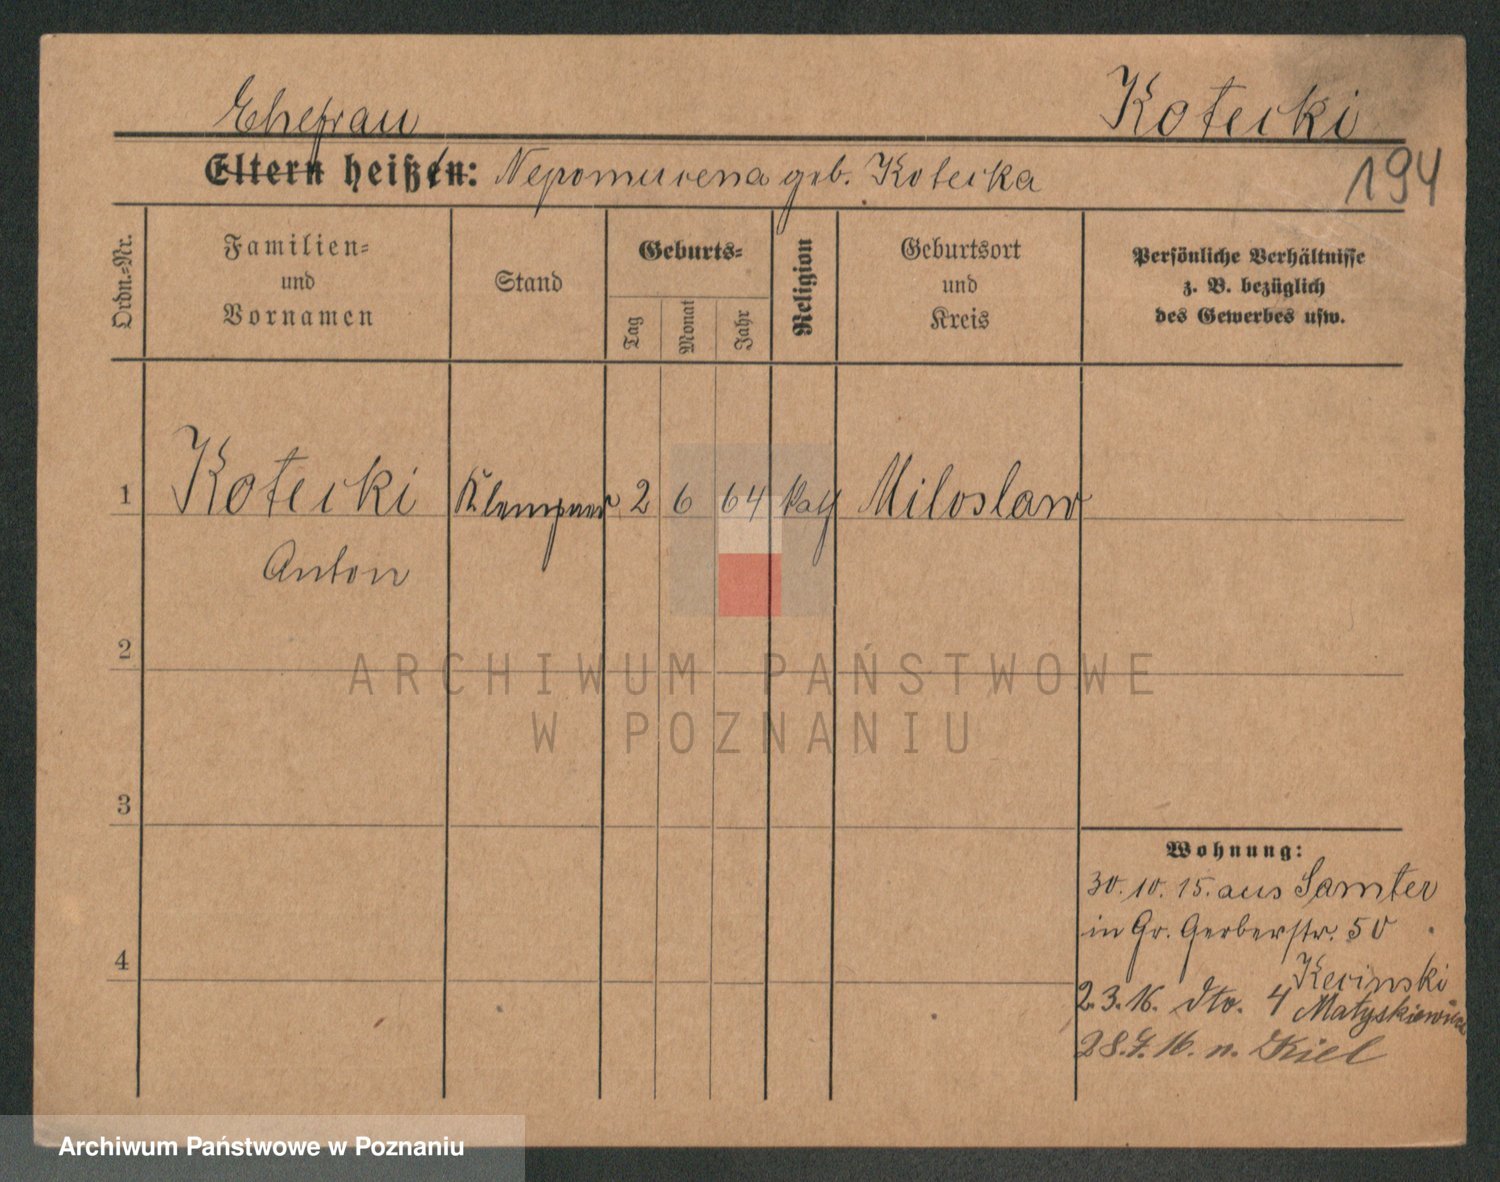 Ehefrau Kotecki
Eltern heißen: Nepomucena geb. Kotecka
194
Ordn.-Nr.
Familien-
und
Vornamen
Stand
Geburts-
Tag Monat Jahr
Religion
Geburtsort
und
Kreis
Persönliche Verhältnisse
z. B. bezüglich
des Gewerbes usw.
1 Kotecki Klempner 2 6 64 kath Miloslaw
Anton
2
3
4
Wohnung:
30.10.15. aus Samter
in Gr. Gerberstr. 50
Kecinski
2.3.16. dto. 4 Matyskiewicz
28.7.16. n. Kiel
ARCHIWUM PAŃSTWOWE
W POZNANIU
Archiwum Państwowe w Poznaniu